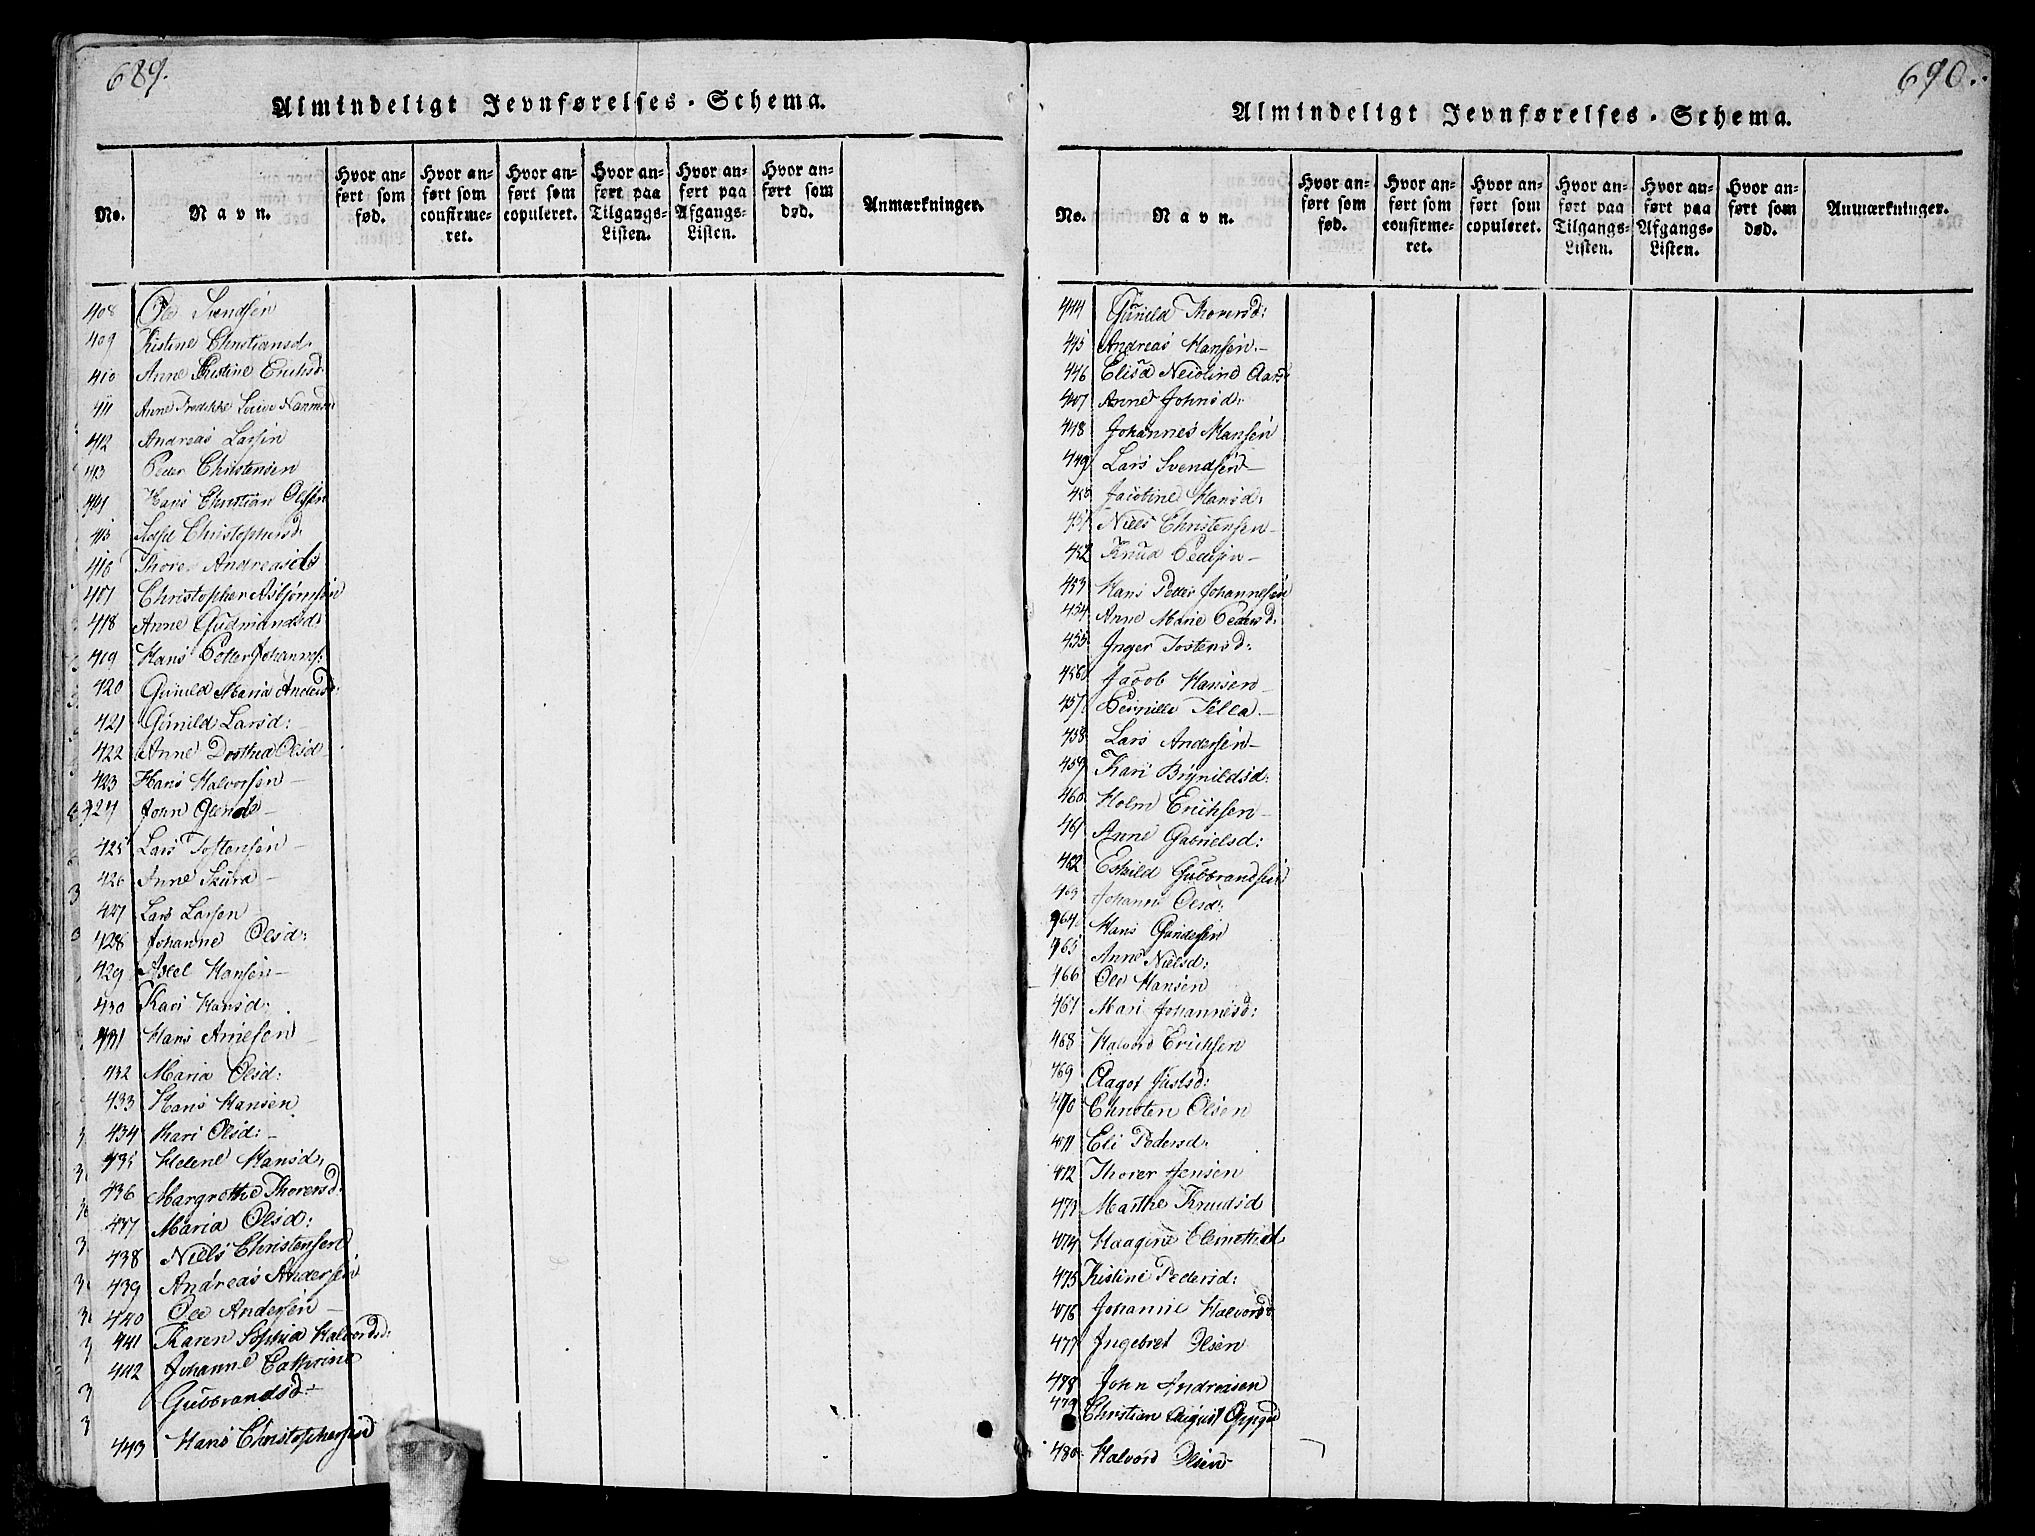 689.
Almindeligt Jevnførelses-Schema.
No.
Navn.
Hvor an-
ført som
fød.
Hvor an-
ført som
confirme-
ret.
Hvor an-
ført som
copuleret.
Hvor an-
ført paa
Tilgangs-
Listen.
Hvor an-
ført paa
Afgangs-
Listen.
Hvor an-
ført som
død.
Anmærkninger.
408 Ole Svendsen
409 Kistine Christiansd.
410 Anne Kristine Erichsd
411 Anne Fredrikke Lovise
412 Andreas Larsen
413 Peder Christensen
414 Hans Christian Olsen
415 Christophersd.
416 Thore Andreasd
417 Christopher Asbjørnsen
418 Anne Gudmandsd:
419 Hans Petter Johannes:
420 Gunild Maria Andersd:
421 Gunild Larsd:
422 Anne Dorthea Olsd
423 Hans Halvorsen
424 John
425 Lars Tostensen
426 Anne Skura
427 Lars Larsen
428 Johanne Olsd:
429 Axel Hansen
430 Kari Hansd.
431 Hans Arnesen
432 Maria Olsd:
433 Hans Hansen
434 Kari Olsd:
435 Helene Hansd:
436 Margrethe Thoresd:
437 Maria Olsd:
438 Niels Christensen
439 Andreas Andersen
440 Ole Andersen
441 Karen Sophia Halvorsd:
442 Johanne Cathrine
Gulbrandsd
443 Hans Christophersen
690.
Almindeligt Jevnførelses-Schema.
No.
Navn.
Hvor an-
ført som
fød.
Hvor an-
ført som
confirme-
ret.
Hvor an-
ført som
copuleret.
Hvor an-
ført paa
Tilgangs-
Listen.
Hvor an-
ført paa
Afgangs-
Listen.
Hvor an-
ført som
død.
Anmærkninger.
444 Gunild Thoresd:
445 Andreas Hansen
446 Elisa
447 Anne Johnsd:
448 Johannes Hansen
449 Lars Svendsen
450 Jacobine Hansd:
451 Niels Christensen
452 Knud Pedersen
453 Hans Petter Johannesen
454 Anne Marie Pedersd:
455 Inger Tostensd:
456 Jacob Hansen
457 Pernille
458 Lars Andersen
459 Kari Brynildsd:
460 Holm Erichsen
461 Anne Gabrielsd:
462 Eskild Gulbrandsen
463 Johanne Olsd:
464 Hans Gundersen
465 Anne Nielsd:
466 Ole Hansen
467 Mari Johannesd:
468 Halvord Erichsen
469 Aagot Justsd:
470 Christen Olsen
471 Eli Pedersd:
472 Thorer Jensen
473 Marthe Knudsd
474 Haagine Clemetsd
475 Kistine Pedersd:
476 Johanne Halvorsd
477 Ingebret Olsen
478 John Andreasen
479 Christian August
480 Halvord Olsen